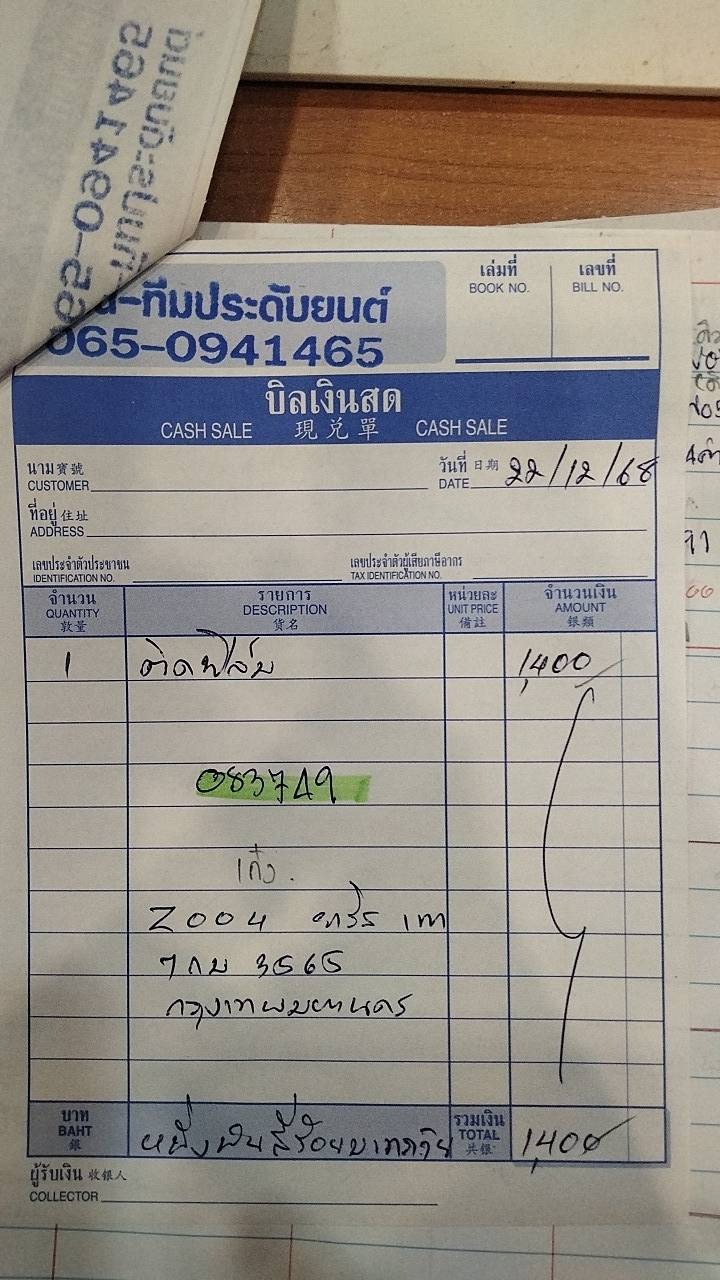 -ทีมประดับยนต์
065-0941465
เล่มที่ เลขที่
BOOK NO. BILL NO.
บิลเงินสด
CASH SALE 現兑單 CASH SALE
นาม 寳號
CUSTOMER
วันที่ 日期
DATE 22/12/68
ที่อยู่ 住址
ADDRESS
เลขประจำตัวประชาชน
IDENTIFICATION NO.
เลขประจำตัวผู้เสียภาษีอากร
TAX IDENTIFICATION NO.
จำนวน รายการ หน่วยละ จำนวนเงิน
QUANTITY DESCRIPTION UNIT PRICE AMOUNT
数量 貨名 備註 銀額
1 ติดฟิล์ม 1,400
083749
เก๋ง.
2004 เทา
7กม 3565
กรุงเทพมหานคร
บาท
BAHT
銀
หนึ่งพันสี่ร้อยบาทถ้วน
รวมเงิน
TOTAL 1,400
共銀
ผู้รับเงิน 收銀人
COLLECTOR